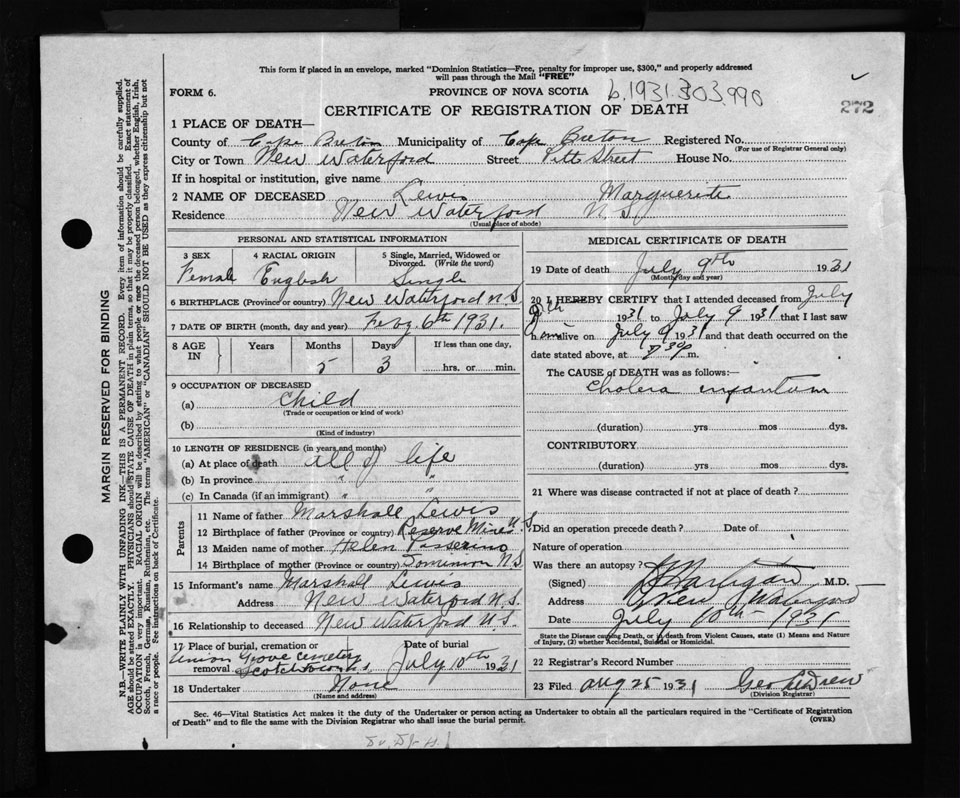 This form if placed in an envelope, marked "Dominion Statistics—Free, penalty for improper use, $300," and properly addressed
will pass through the Mail "FREE"
FORM 6. PROVINCE OF NOVA SCOTIA b.1931.303.990
CERTIFICATE OF REGISTRATION OF DEATH 272
1 PLACE OF DEATH—
County of Cape Breton Municipality of Cape Breton Registered No.
(For use of Registrar General only)
City or Town New Waterford Street Pitt Street House No.
If in hospital or institution, give name
2 NAME OF DECEASED Lewis Marguerite
Residence New Waterford N S
(Usual place of abode)
PERSONAL AND STATISTICAL INFORMATION
3 SEX 4 RACIAL ORIGIN 5 Single, Married, Widowed or
Divorced. (Write the word)
Female English Single
6 BIRTHPLACE (Province or country) New Waterford N.S
7 DATE OF BIRTH (month, day and year) Feby 6th 1931.
8 AGE IN Years Months Days If less than one day,
5 3 hrs. or min.
9 OCCUPATION OF DECEASED
(a) Child
(Trade or occupation or kind of work)
(b)
(Kind of industry)
10 LENGTH OF RESIDENCE (in years and months)
(a) At place of death all of life
(b) In province " "
(c) In Canada (if an immigrant) " "
Parents
11 Name of father Marshall Lewis
12 Birthplace of father (Province or country) Reserve Mines N.S.
13 Maiden name of mother Helen
14 Birthplace of mother (Province or country) Dominion N.S
15 Informant's name Marshall Lewis
Address New Waterford N.S.
16 Relationship to deceased New Waterford N.S.
17 Place of burial, cremation or Date of burial
removal Union Grove Cemetery July 10th 1931
18 Undertaker None
(Name and address)
MEDICAL CERTIFICATE OF DEATH
19 Date of death July 9th 1931
(Month, day and year)
20 I HEREBY CERTIFY that I attended deceased from July
1931 to July 9 1931 that I last saw
h alive on July 9 1931 and that death occurred on the
date stated above, at m.
The CAUSE OF DEATH was as follows:—
Cholera infantum
(duration) yrs mos dys.
CONTRIBUTORY
(duration) yrs. mos dys.
21 Where was disease contracted if not at place of death?
Did an operation precede death? Date of
Nature of operation
Was there an autopsy?
(Signed) M.D.
Address New Waterford
Date July 10th 1931
State the Disease causing Death, or if death from Violent Causes, state (1) Means and Nature
of Injury, (2) whether Accidental, Suicidal or Homicidal.
22 Registrar's Record Number
23 Filed Aug 25 1931 Geo
(Division Registrar)
Sec. 46—Vital Statistics Act makes it the duty of the Undertaker or person acting as Undertaker to obtain all the particulars required in the "Certificate of Registration
of Death" and to file the same with the Division Registrar who shall issue the burial permit. (OVER)
MARGIN RESERVED FOR BINDING
N.B.—WRITE PLAINLY WITH UNFADING INK—THIS IS A PERMANENT RECORD. Every item of information should be carefully supplied.
AGE should be stated EXACTLY. PHYSICIANS should STATE CAUSE OF DEATH in plain terms, so that it may be properly classified. Exact statement of
OCCUPATION is very important. RACIAL ORIGIN will be described by stating to what people or race the deceased person belonged, whether English, Irish,
Scotch, French, German, Russian, Ruthenian, etc. The terms "AMERICAN" or "CANADIAN" SHOULD NOT BE USED as they express citizenship but not
a race or people. See instructions on back of Certificate.